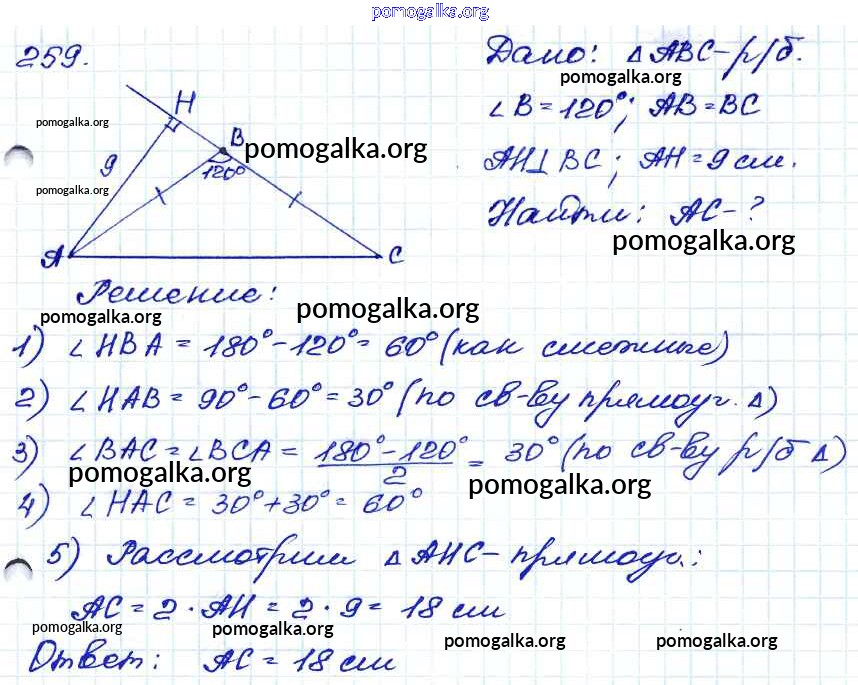 pomogalka.org
259.
Дано: △ABC - р/б.
pomogalka.org
∠B = 120°; AB = BC
AH⊥BC; AH = 9 см.
Найти: AC - ?
pomogalka.org
H
pomogalka.org
B
pomogalka.org
9
120°
pomogalka.org
A
C
Решение:
pomogalka.org
pomogalka.org
1) ∠HBA = 180° - 120° = 60° (как смежные)
2) ∠HAB = 90° - 60° = 30° (по св-ву прямоуг. △)
3) ∠BAC = ∠BCA = (180° - 120°)/2 = 30° (по св-ву р/б △)
pomogalka.org
pomogalka.org
4) ∠HAC = 30° + 30° = 60°
5) Рассмотрим △AHC - прямоуг.:
AC = 2 · AH = 2 · 9 = 18 см
pomogalka.org
pomogalka.org
pomogalka.org
pomogalka.org
Ответ: AC = 18 см